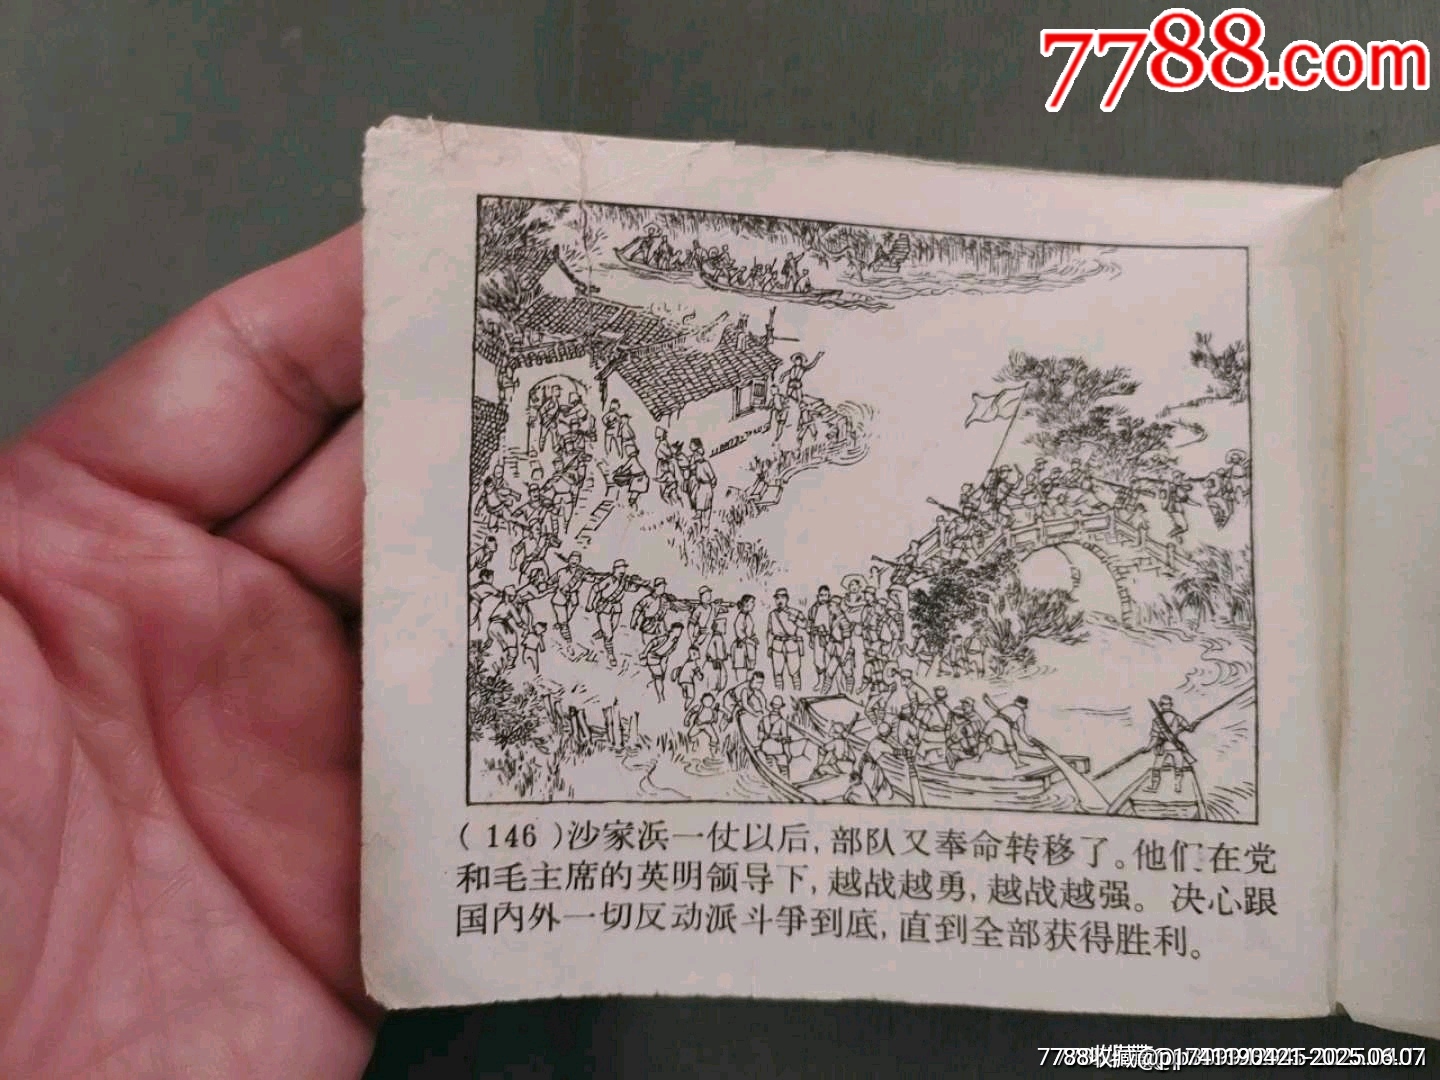 7788.com
(146)沙家浜一仗以后,部队又奉命转移了。他们在党
和毛主席的英明领导下,越战越勇,越战越强。决心跟
国内外一切反动派斗爭到底,直到全部获得胜利。
7788收藏
2025.06.07